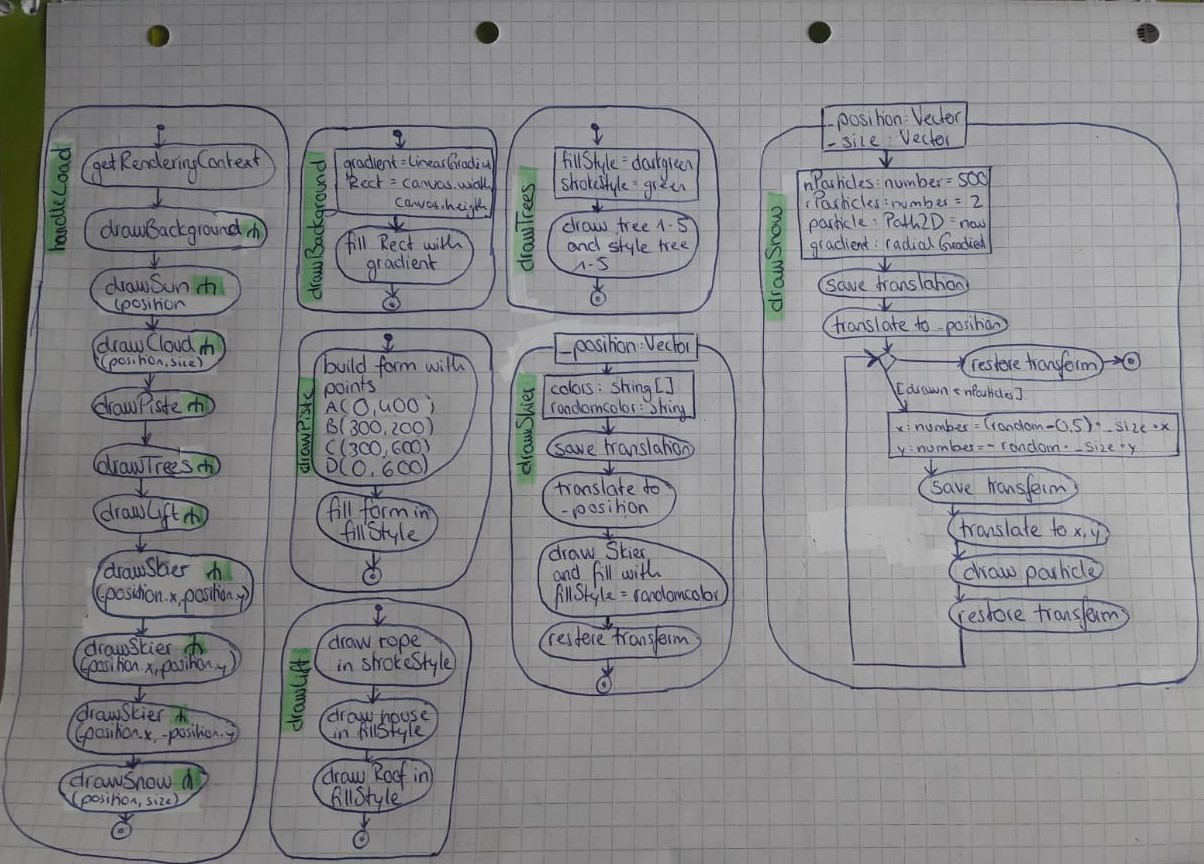 handleLoad
getRenderingContext
drawBackground
drawSun
(position
drawCloud
(position, size)
drawPiste
drawTrees
drawLift
drawSkier
(-position.x, position.y)
drawSkier
(position.x, position.y)
drawSkier
(position.x, -position.y)
drawSnow
(position, size)
drawBackground
gradient = LinearGradient
Rect = canvas.width
canvas.heigth
fill Rect with
gradient
drawPiste
build form with
points
A(0,400)
B(300,200)
C(300,600)
D(0,600)
fill form in
fillStyle
drawLift
draw rope
in strokeStyle
draw house
in fillStyle
draw Roof in
fillStyle
drawTrees
fillStyle = darkgreen
strokeStyle = green
draw tree 1-5
and style tree
1-5
drawSkier
_position: Vector
colors: string[]
randomcolor: string
save translation
translate to
-position
draw Skier
and fill with
fillStyle = randomcolor
restore transform
drawSnow
-position: Vector
- size: Vector
nParticles: number = 500
rParticles: number = 2
particle: Path2D = new
gradient: radialGradient
save translation
translate to -position
restore transform
[drawn < nParticles]
x: number = (random - 0,5) · _size · x
y: number = - random · _size · y
save transferm
translate to x, y
draw particle
restore transform